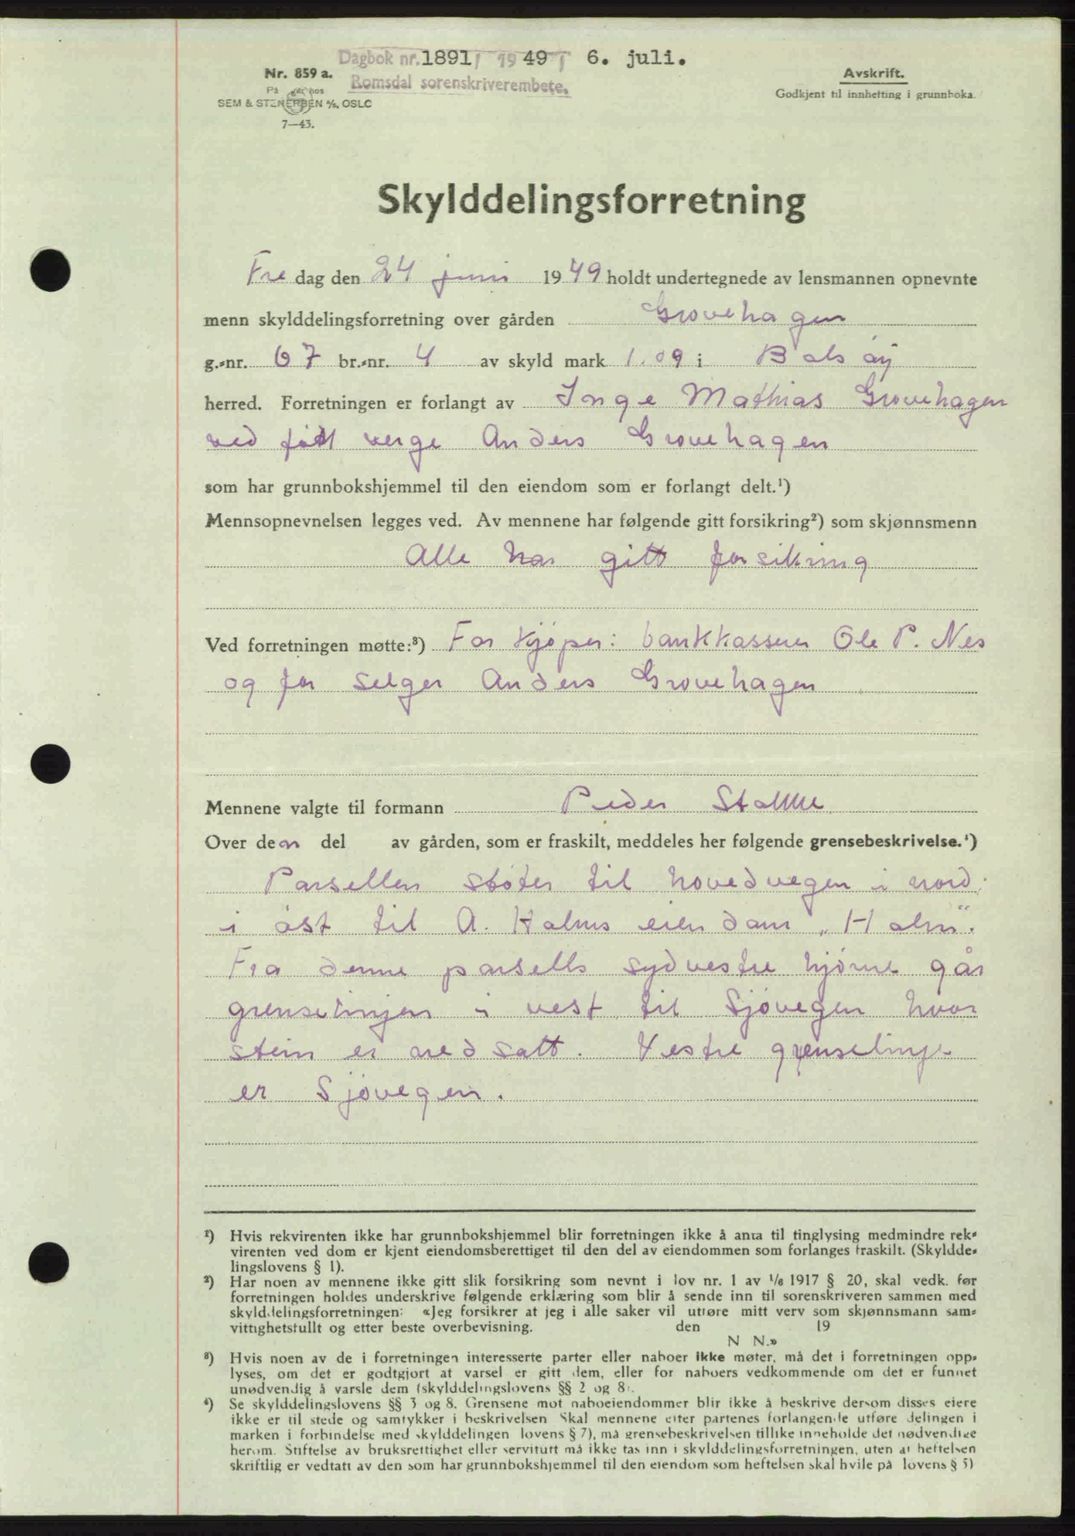 Dagbok nr. 1891 / 1949 / 6. juli.
Romsdal sorenskriverembete.
Nr. 859 a.
På hos
SEM & STENERSEN A/S, OSLO
7—43.
Avskrift.
Godkjent til innhefting i grunnboka.
Skylddelingsforretning
Fredag den 24 juni 1949 holdt undertegnede av lensmannen opnevnte
menn skylddelingsforretning over gården Grovehagen
g.-nr. 67 br.-nr. 4 av skyld mark 1.09 i Bolsøy
herred. Forretningen er forlangt av Inge Mathias Grovehagen
ved verge Anders Grovehagen
som har grunnbokshjemmel til den eiendom som er forlangt delt.¹)
Mennsopnevnelsen legges ved. Av mennene har følgende gitt forsikring²) som skjønnsmenn
Alle har gitt forsikring
Ved forretningen møtte:³) For kjøper: bankkasserer Ole P. Nes
og for selger Anders Grovehagen
Mennene valgte til formann Peder Stokke
Over den del av gården, som er fraskilt, meddeles her følgende grensebeskrivelse.⁴)
Parsellen støter til hovedvegen i nord.
i øst til A. Holms eiendom „Holm".
Fra denne parsells sydvestre hjørne går
grenselinjen i vest til Sjøvegen hvor
stein er nedsatt. Vestre grenselinje
er Sjøvegen.
¹) Hvis rekvirenten ikke har grunnbokshjemmel blir forretningen ikke å anta til tinglysing medmindre rek-
virenten ved dom er kjent eiendomsberettiget til den del av eiendommen som forlanges fraskilt. (Skyldde-
lingslovens § 1).
²) Har noen av mennene ikke gitt slik forsikring som nevnt i lov nr. 1 av 1/6 1917 § 20, skal vedk. før
forretningen holdes underskrive følgende erklæring som blir å sende inn til sorenskriveren sammen med
skylddelingsforretningen: «Jeg forsikrer at jeg i alle saker vil utføre mitt verv som skjønnsmann sam-
vittighetsfullt og etter beste overbevisning. den 19
N N.»
³) Hvis noen av de i forretningen interesserte parter eller naboer ikke møter, må det i forretningen opp-
lyses, om det er godtgjort at varsel er gitt dem, eller for naboers vedkommende om det er funnet
unødvendig å varsle dem (skylddelingslovens §§ 2 og 8).
⁴) Se skylddelingslovens §§ 3 og 8. Grensene mot naboeiendommer blir ikke å beskrive dersom disses eiere
ikke er til stede og samtykker i beskrivelsen Skal mennene etter partenes forlangende utføre delingen i
marken i forbindelse med skylddelingen lovens § 7), må grensebeskrivelsen tillike inneholde det nødvendige
herom. Stiftelse av bruksrettighet eller servitutt må ikke tas inn i skylddelingsforretningen, uten at heftelsen
skriftlig er vedtatt av den som har grunnbokshjemmel til den eiendom som heftelsen skal hvile på lovens § 5)